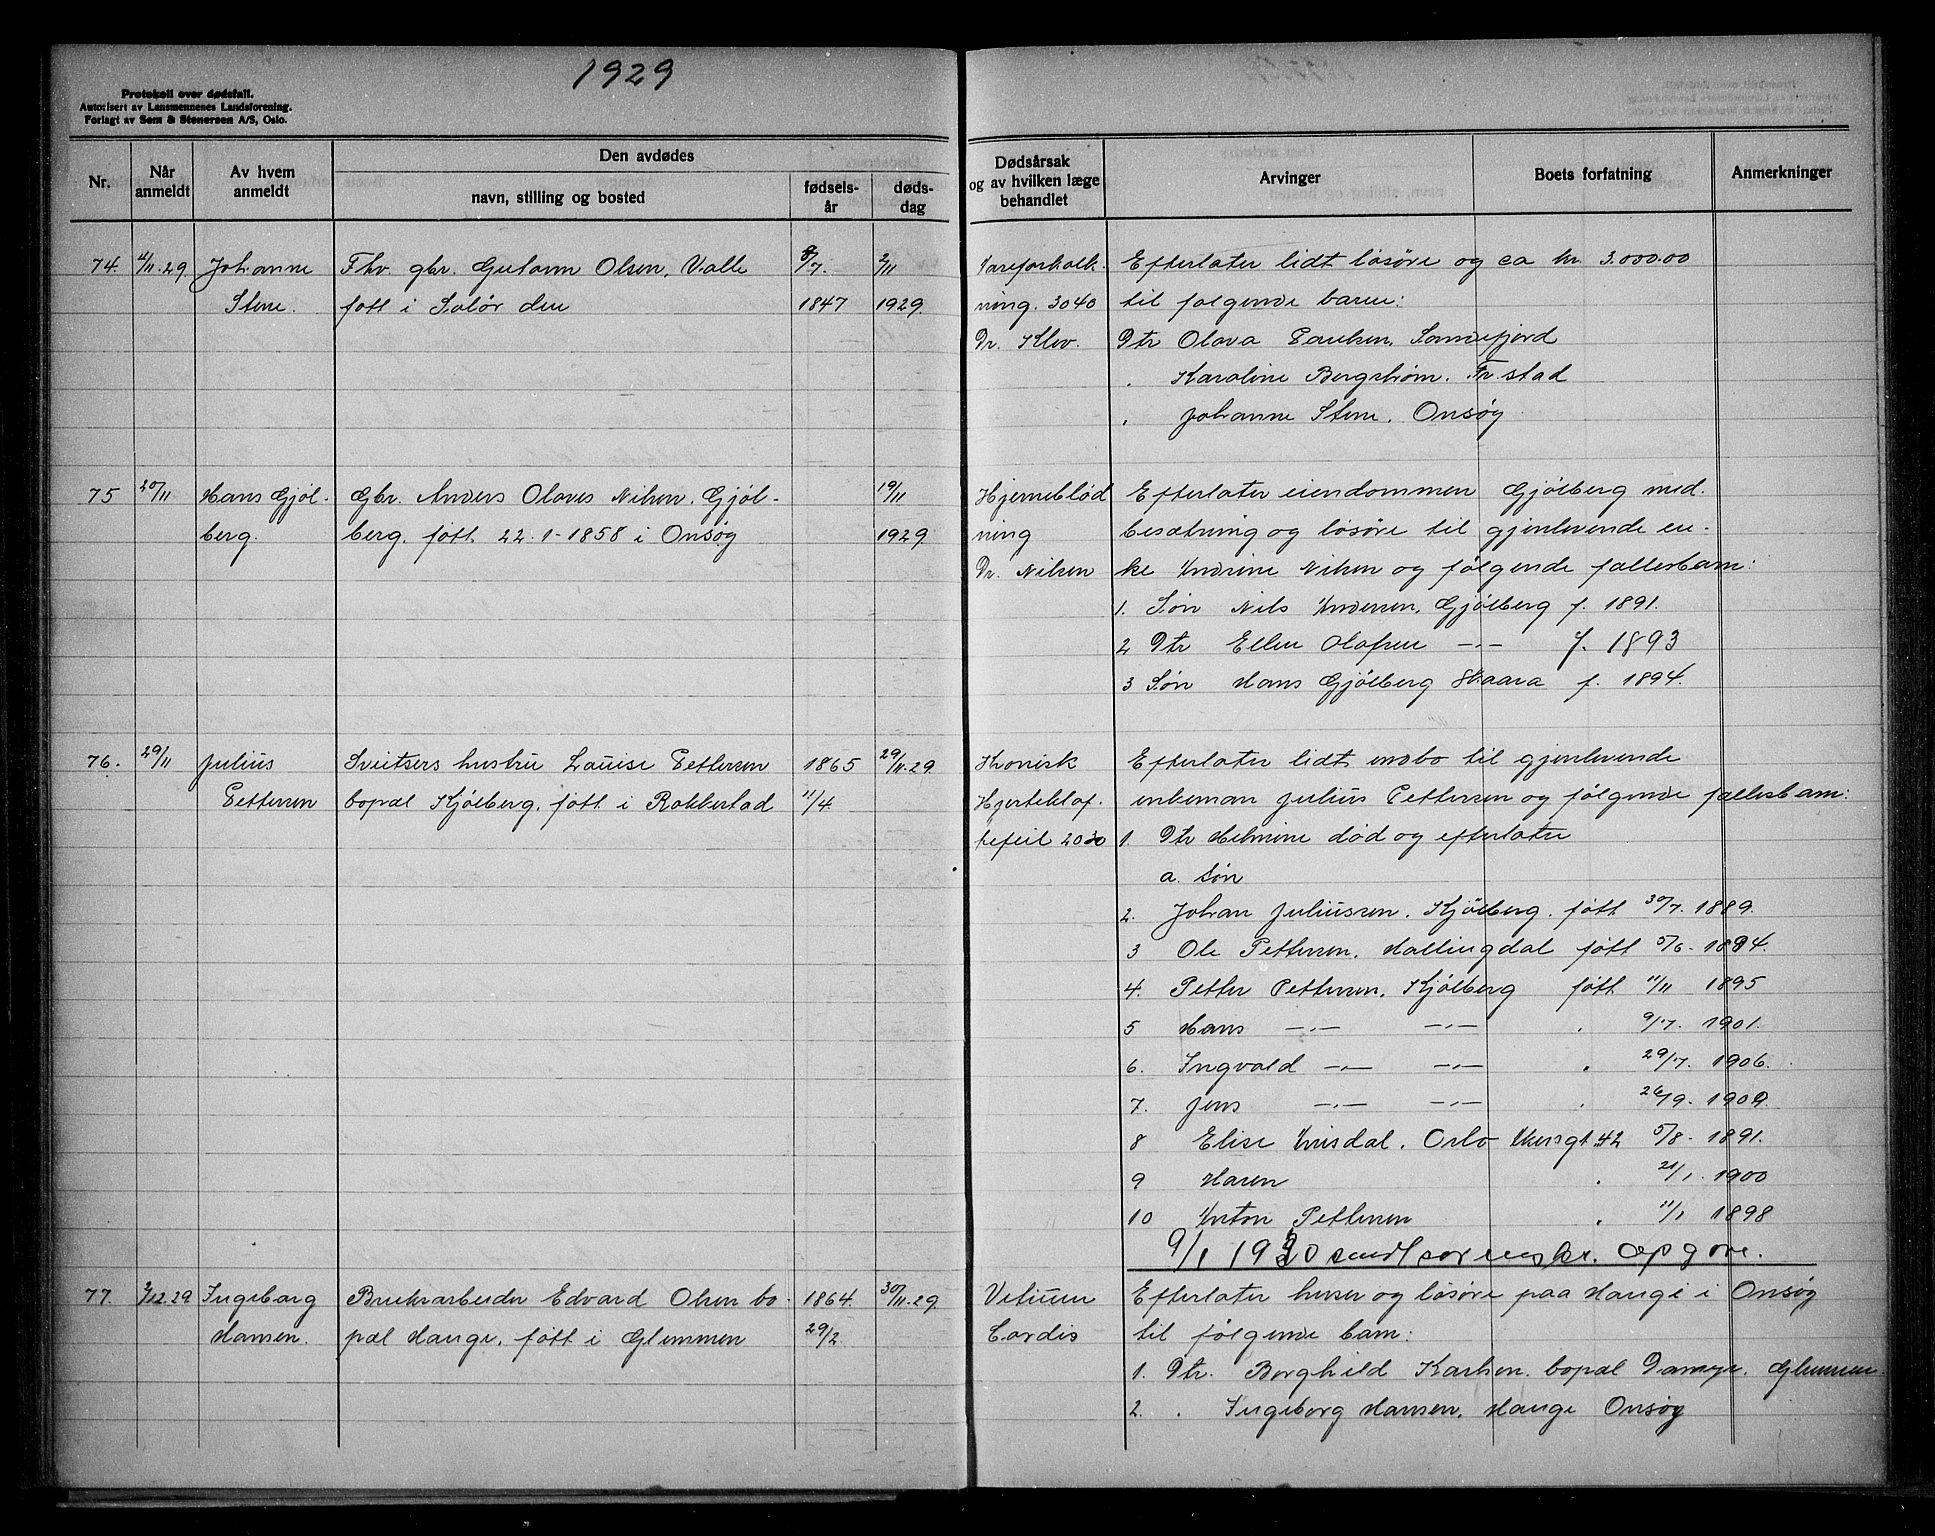 1929
Protokoll over dødsfall.
Autorisert av Lensmennenes Landsforening.
Forlagt av Sem & Stenersen A/S, Oslo.
Nr.
Når anmeldt
Av hvem anmeldt
Den avdødes
navn, stilling og bosted
fødselsår
dødsdag
Dødsårsak og av hvilken læge behandlet
Arvinger
Boets forfatning
Anmerkninger
74. 11/11.29. Johanne Fhv. gbr. Gustavm Olsen, Valle 8/7. 2/11
Stene. født i Solør den 1847 1929.
Åreforkalk-
ning. 3040
Dr. Klev.
Efterlater lidt løsøre og ca kr. 3.000.00
til følgende barn:
Dtr Olava Paulsen, Sandefjord
" Karoline Bergstrøm. Fr.stad
" Johanne Stene. Onsøy
75 20/11 Hans Gjøl- Gbr. Anders Olaves Nilsen. Gjøl- 19/11
berg. berg, født 22.1-1858 i Onsøy 1929.
Hjerneblød
ning
Dr. Nilsen
Efterlater eiendommen Gjølberg med
besætning og løsøre til gjenlevende en-
ke Andrine Nilsen og følgende fællesbarn:
1. Søn Nils Andersen, Gjølberg f. 1891.
2 Dtr Ellen Olafsen -"- f. 1893
3 Søn Hans Gjølberg Skaara f. 1894.
76. 29/11 Julius Sveitsers hustru Lauise Pettersen 1865 29/11.29.
Pettersen bopæl Kjølberg, født i Rakkestad 11/4
Kronisk
Hjerteklaf-
fefeil 2030
Efterlater lidt indbo til gjenlevende
enkeman Julius Pettersen og følgende fællesbarn:
1. Dtr Helmine død og efterlater
a. søn
2. Johan Juliussen, Kjølberg. født 30/7. 1889.
3 Ole Pettersen, Hallingdal født 5/6. 1894.
4. Petter Pettersen, Kjølberg født 11/11 1895
5 Hans -"- -"- " 9/7. 1901.
6. Ingvald -"- -"- " 29/7. 1906.
7. Jens -"- -"- " 26/9. 1909.
8 Elise Arisdal. Oslo Akersgt 42 5/8. 1891.
9 Maren " 21/1. 1900
10 Anton Pettersen " 11/1 1898
9/1 1930 sendt sorenskr. opgave.
77. 2/12.29 Ingeborg Bruksarbeider Edvard Olsen bo- 1864. 30/11.29.
Hansen. pæl Hauge, født i Glemmen 29/2.
Vitium
Cordis
Efterlater huser og løsøre paa Hauge i Onsøy
til følgende barn:
1. Dtr. Borghild Karlsen bopæl Damyr. Glemmen.
2. " Ingeborg Hansen, Hauge Onsøy